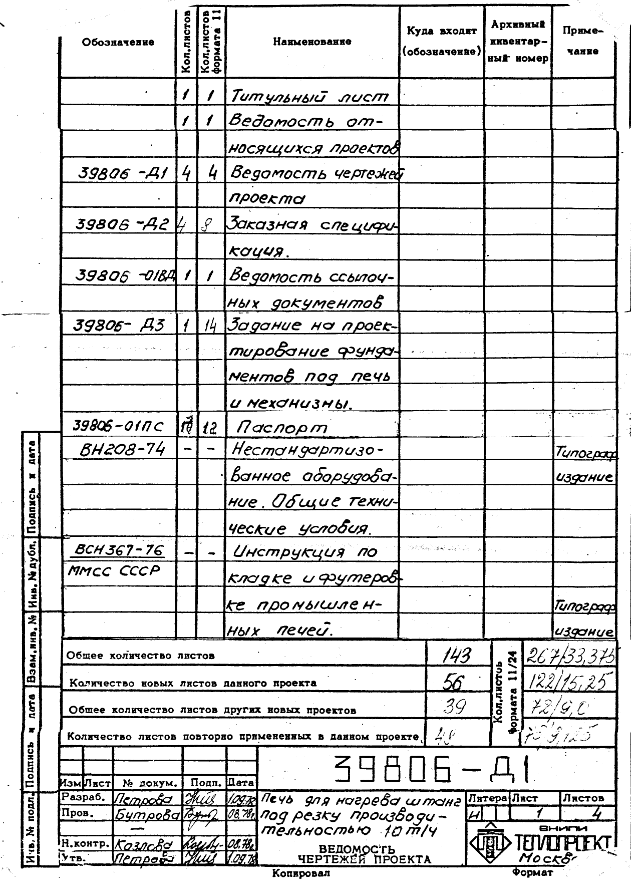 Обозначение Кол.листов Кол.листов формата 11 Наименование Куда входит (обозначение) Архивный инвентар-ный номер Приме-чание
1 1 Титульный лист
1 1 Ведомость от-
носящихся проектов
39806-Д1 4 4 Ведомость чертежей
проекта
39806-Д2 4 8 Заказная специфи-
кация.
39806-01ВД 1 1 Ведомость ссылоч-
ных документов
39806-Д3 1 14 Задание на проек-
тирование фунда-
ментов под печь
и механизмы.
39806-01ПС 12 Паспорт
ВН208-74 – – Нестандартизо- Типограф
ванное оборудова- издание
ние. Общие техни-
ческие условия.
ВСН367-76 – – Инструкция по
ММСС СССР кладке и футеров-
ке промышлен- Типограф
ных печей. издание
Общее количество листов 143 Кол.листов формата 11/24 267/33,375
Количество новых листов данного проекта 56 122/15,25
Общее количество листов других новых проектов 39 72/9,0
Количество листов повторно примененных в данном проекте. 48
39806-Д1
Изм Лист № докум. Подп. Дата
Разраб. Петрова
Пров. Бутрова 08.78
Н.контр. Козлова
Утв. Петрова
Печь для нагрева штанг
под резку производи-
тельностью 10 т/ч
ВЕДОМОСТЬ
ЧЕРТЕЖЕЙ ПРОЕКТА
Литера Лист Листов
И 1 4
ВНИПИ
ТЕПЛОПРОЕКТ
Москва
Копировал Формат
Инв. № подл. Подпись и дата Взам.инв. № Инв. № дубл. Подпись и дата